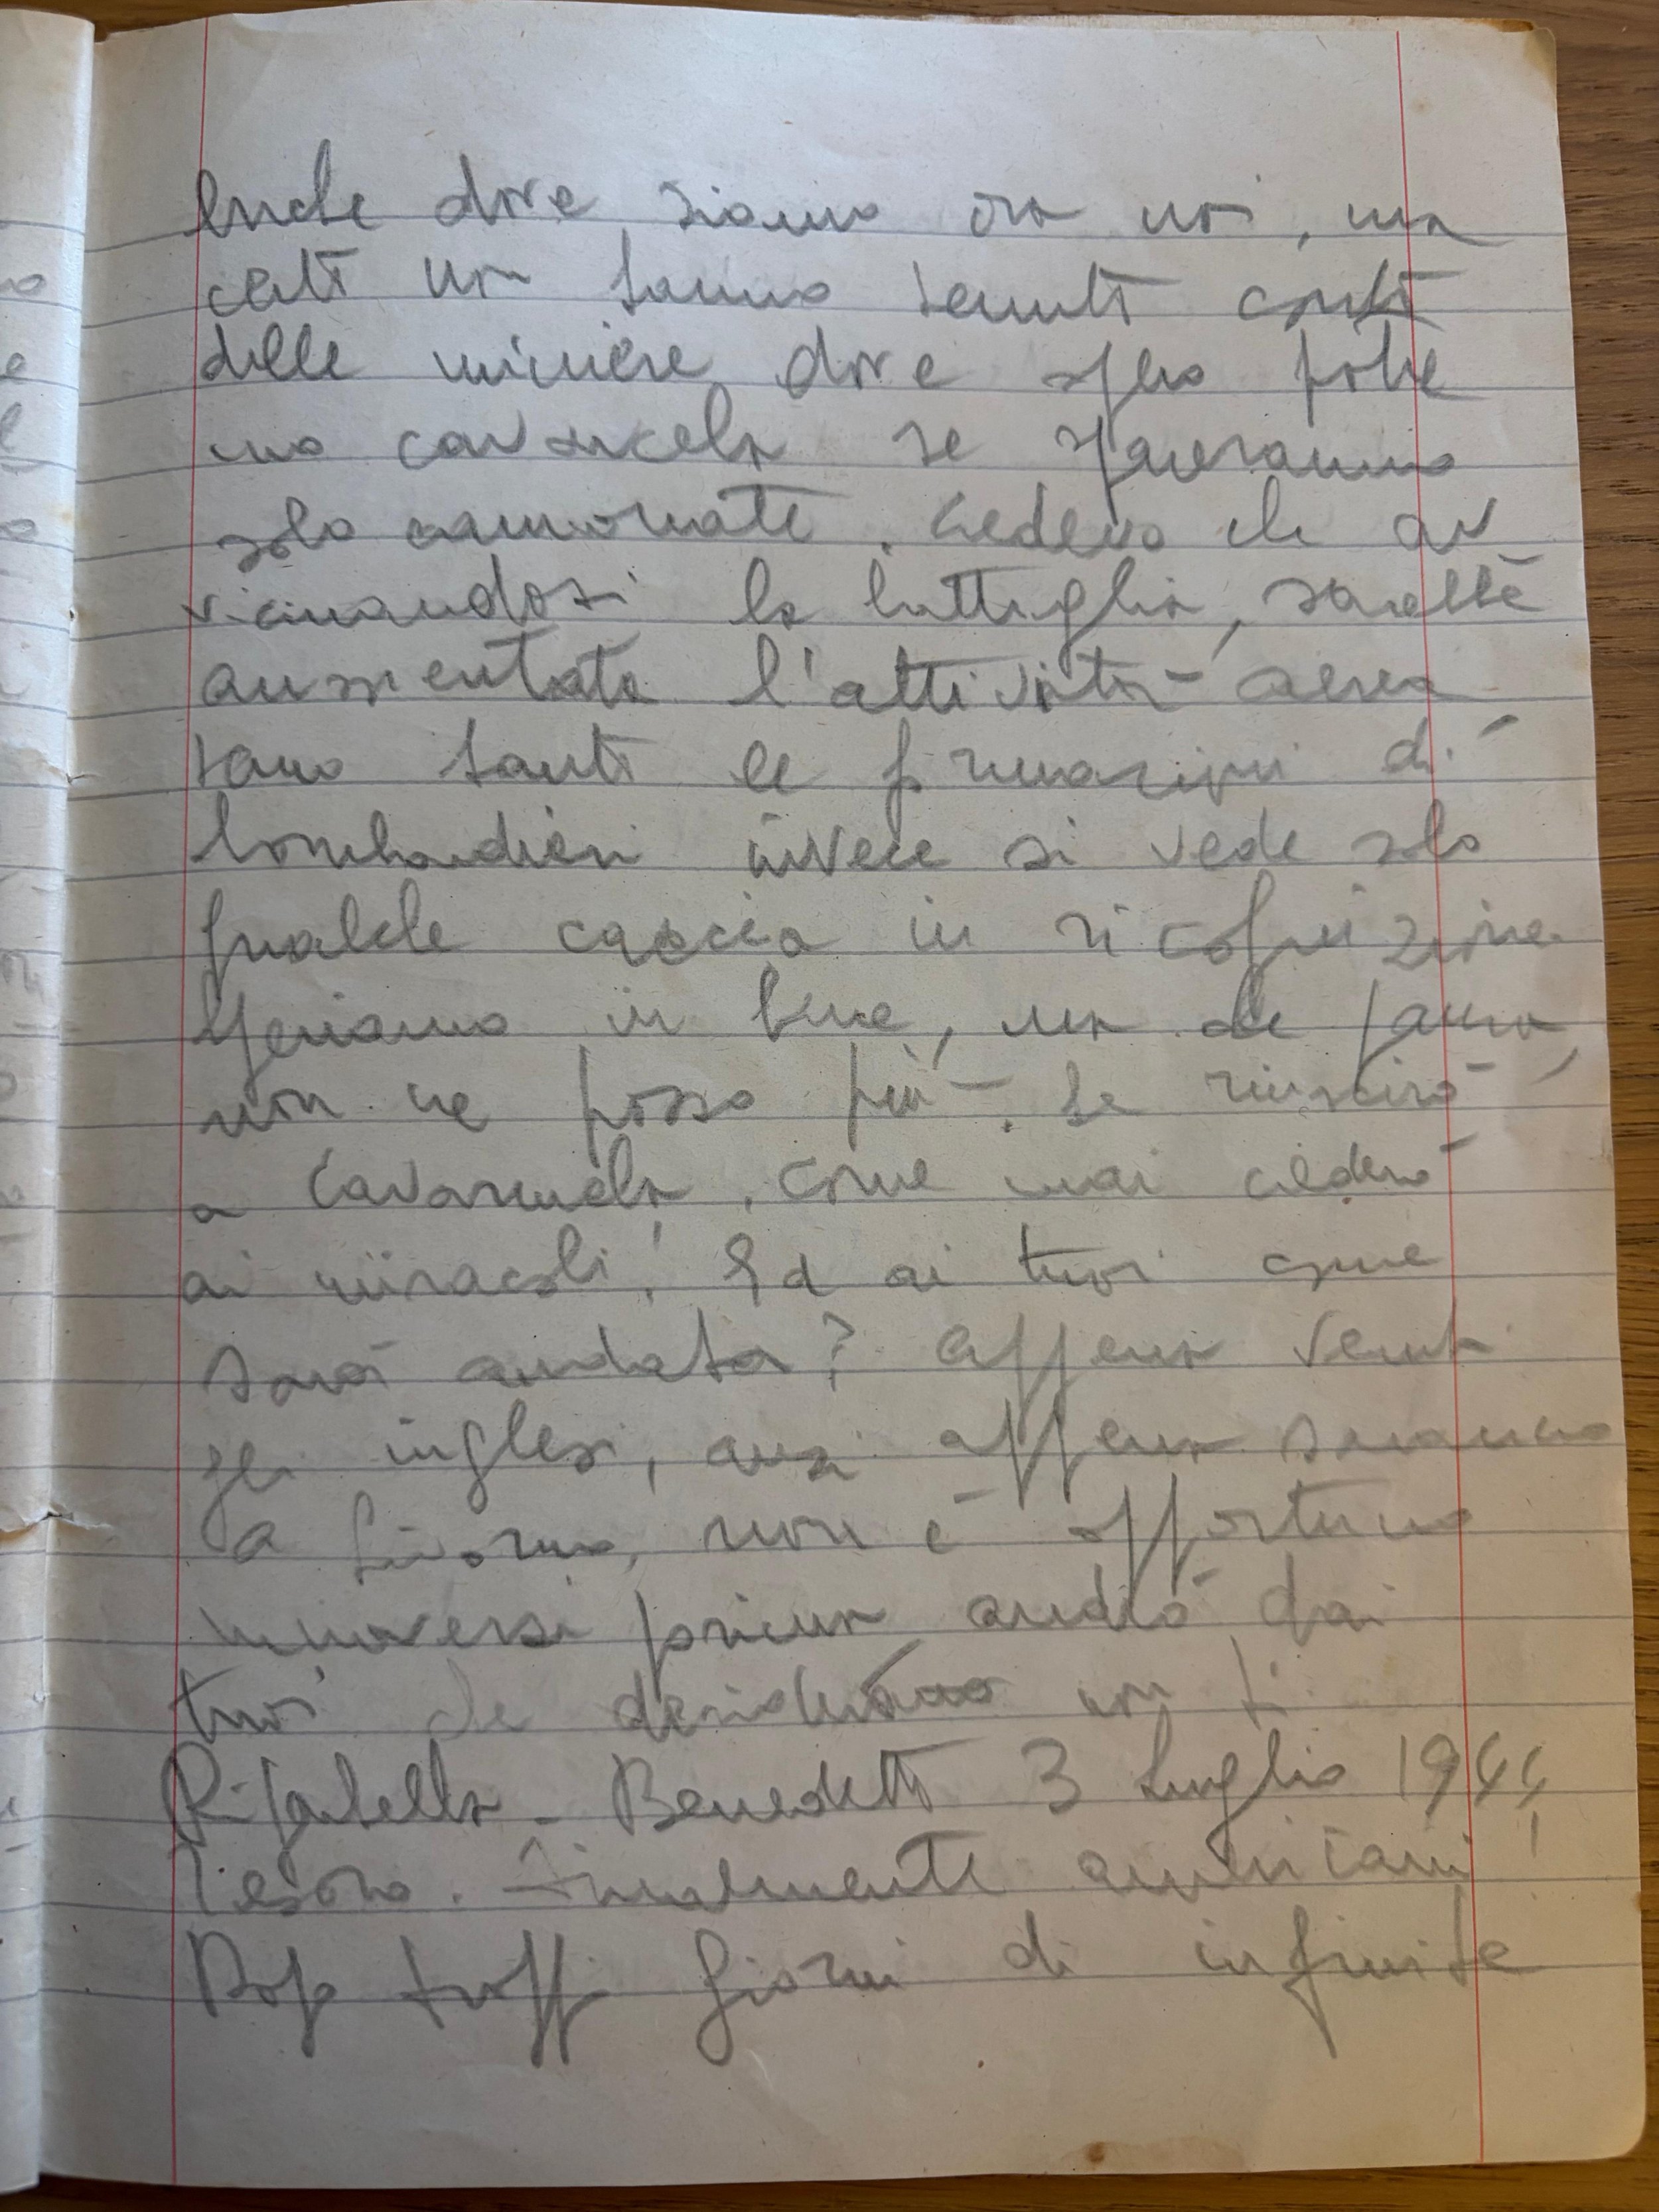 anche dove siamo ora noi, ma
certi non hanno tenuti conti
delle miniere dove spero potre
mo cavarcela se spareranno
solo cannonate. Credevo che av
vicinandosi la battaglia, sarebbe
aumentata l'attività aerea
sono tanti le formazioni di
bombardieri invece si vede solo
qualche caccia in ricognizione.
Speriamo in bene, ma che paura,
non ne posso più. Se riuscirò
a cavarmela, come mai crederò
ai miracoli! Ed ai tuoi come
sarà andata? Appena venuti
gli inglesi, anzi appena saranno
a Livorno, non è opportuno
muoversi prima andrò dai
tuoi che desidero con ti
Riparbella - Benedetti 3 Luglio 1944
Tesoro. Finalmente americani!
Dopo troppi giorni di infinite